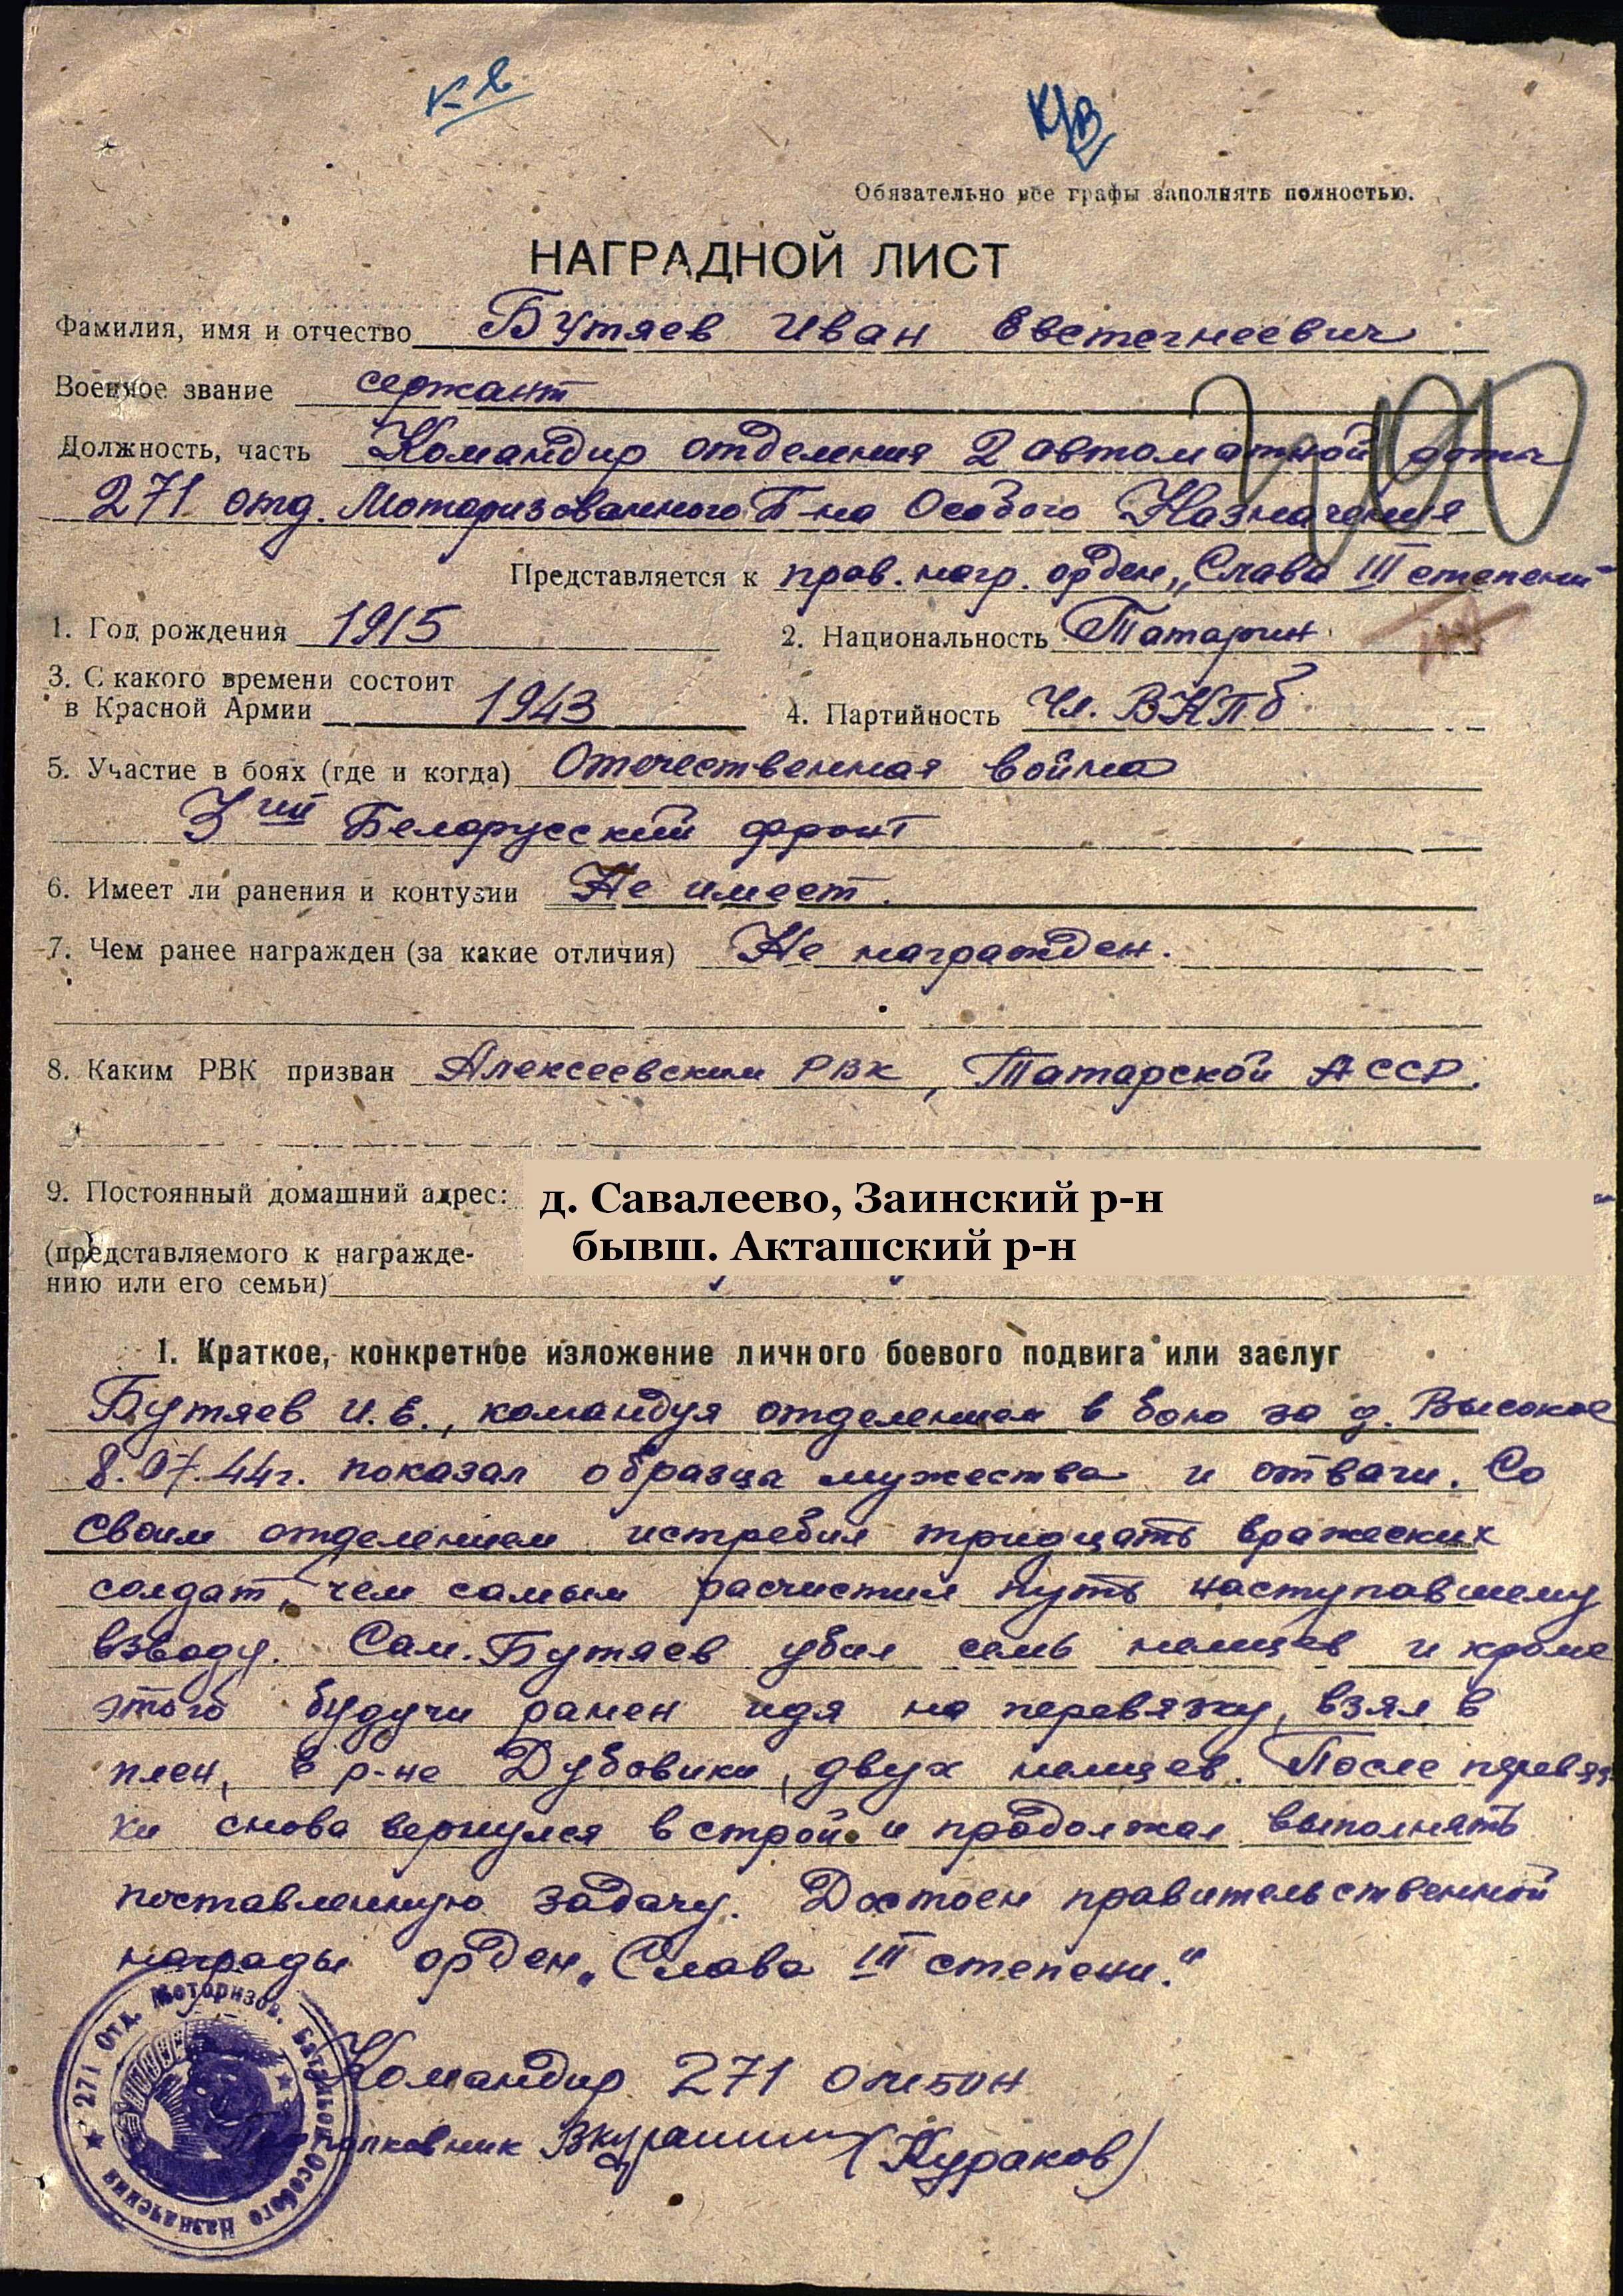 К-В
К/В
Обязательно все графы заполнять полностью.
НАГРАДНОЙ ЛИСТ
Фамилия, имя и отчество Бутяев Иван Евстегнеевич
Военное звание сержант
Должность, часть Командир отделения 2 автоматной роты
271 отд. Моторизованного Б-на Особого Назначения
Представляется к прав. нагр. орден „Слава III степени"
1. Год рождения 1915 2. Национальность Татарин
3. С какого времени состоит
в Красной Армии 1943 4. Партийность Чл. ВКПб
5. Участие в боях (где и когда) Отечественная война
3ий Белорусский фронт
6. Имеет ли ранения и контузии Не имеет.
7. Чем ранее награжден (за какие отличия) Не награжден.
8. Каким РВК призван Алексеевским РВК, Татарской АССР.
9. Постоянный домашний адрес: д. Савалеево, Заинский р-н
бывш. Акташский р-н
(представляемого к награжде-
нию или его семьи)
I. Краткое, конкретное изложение личного боевого подвига или заслуг
Бутяев И.Е., командуя отделением в бою за д. Высокое
8.07.44г. показал образца мужества и отваги. Со
своим отделением истребил тридцать вражеских
солдат, чем самым расчистил путь наступавшему
взводу. Сам. Бутяев убил семь немцев и кроме
этого будучи ранен идя на перевязку, взял в
плен, в р-не Дубовики, двух немцев. После перевяз-
ки снова вернулся в строй и продолжал выполнять
поставленную задачу. Достоен правительственной
награды орден „Слава III степени."
Командир 271 омбон
подполковник (Кураков)
271 Отд. Моторизов. Батальон Особого Назначения